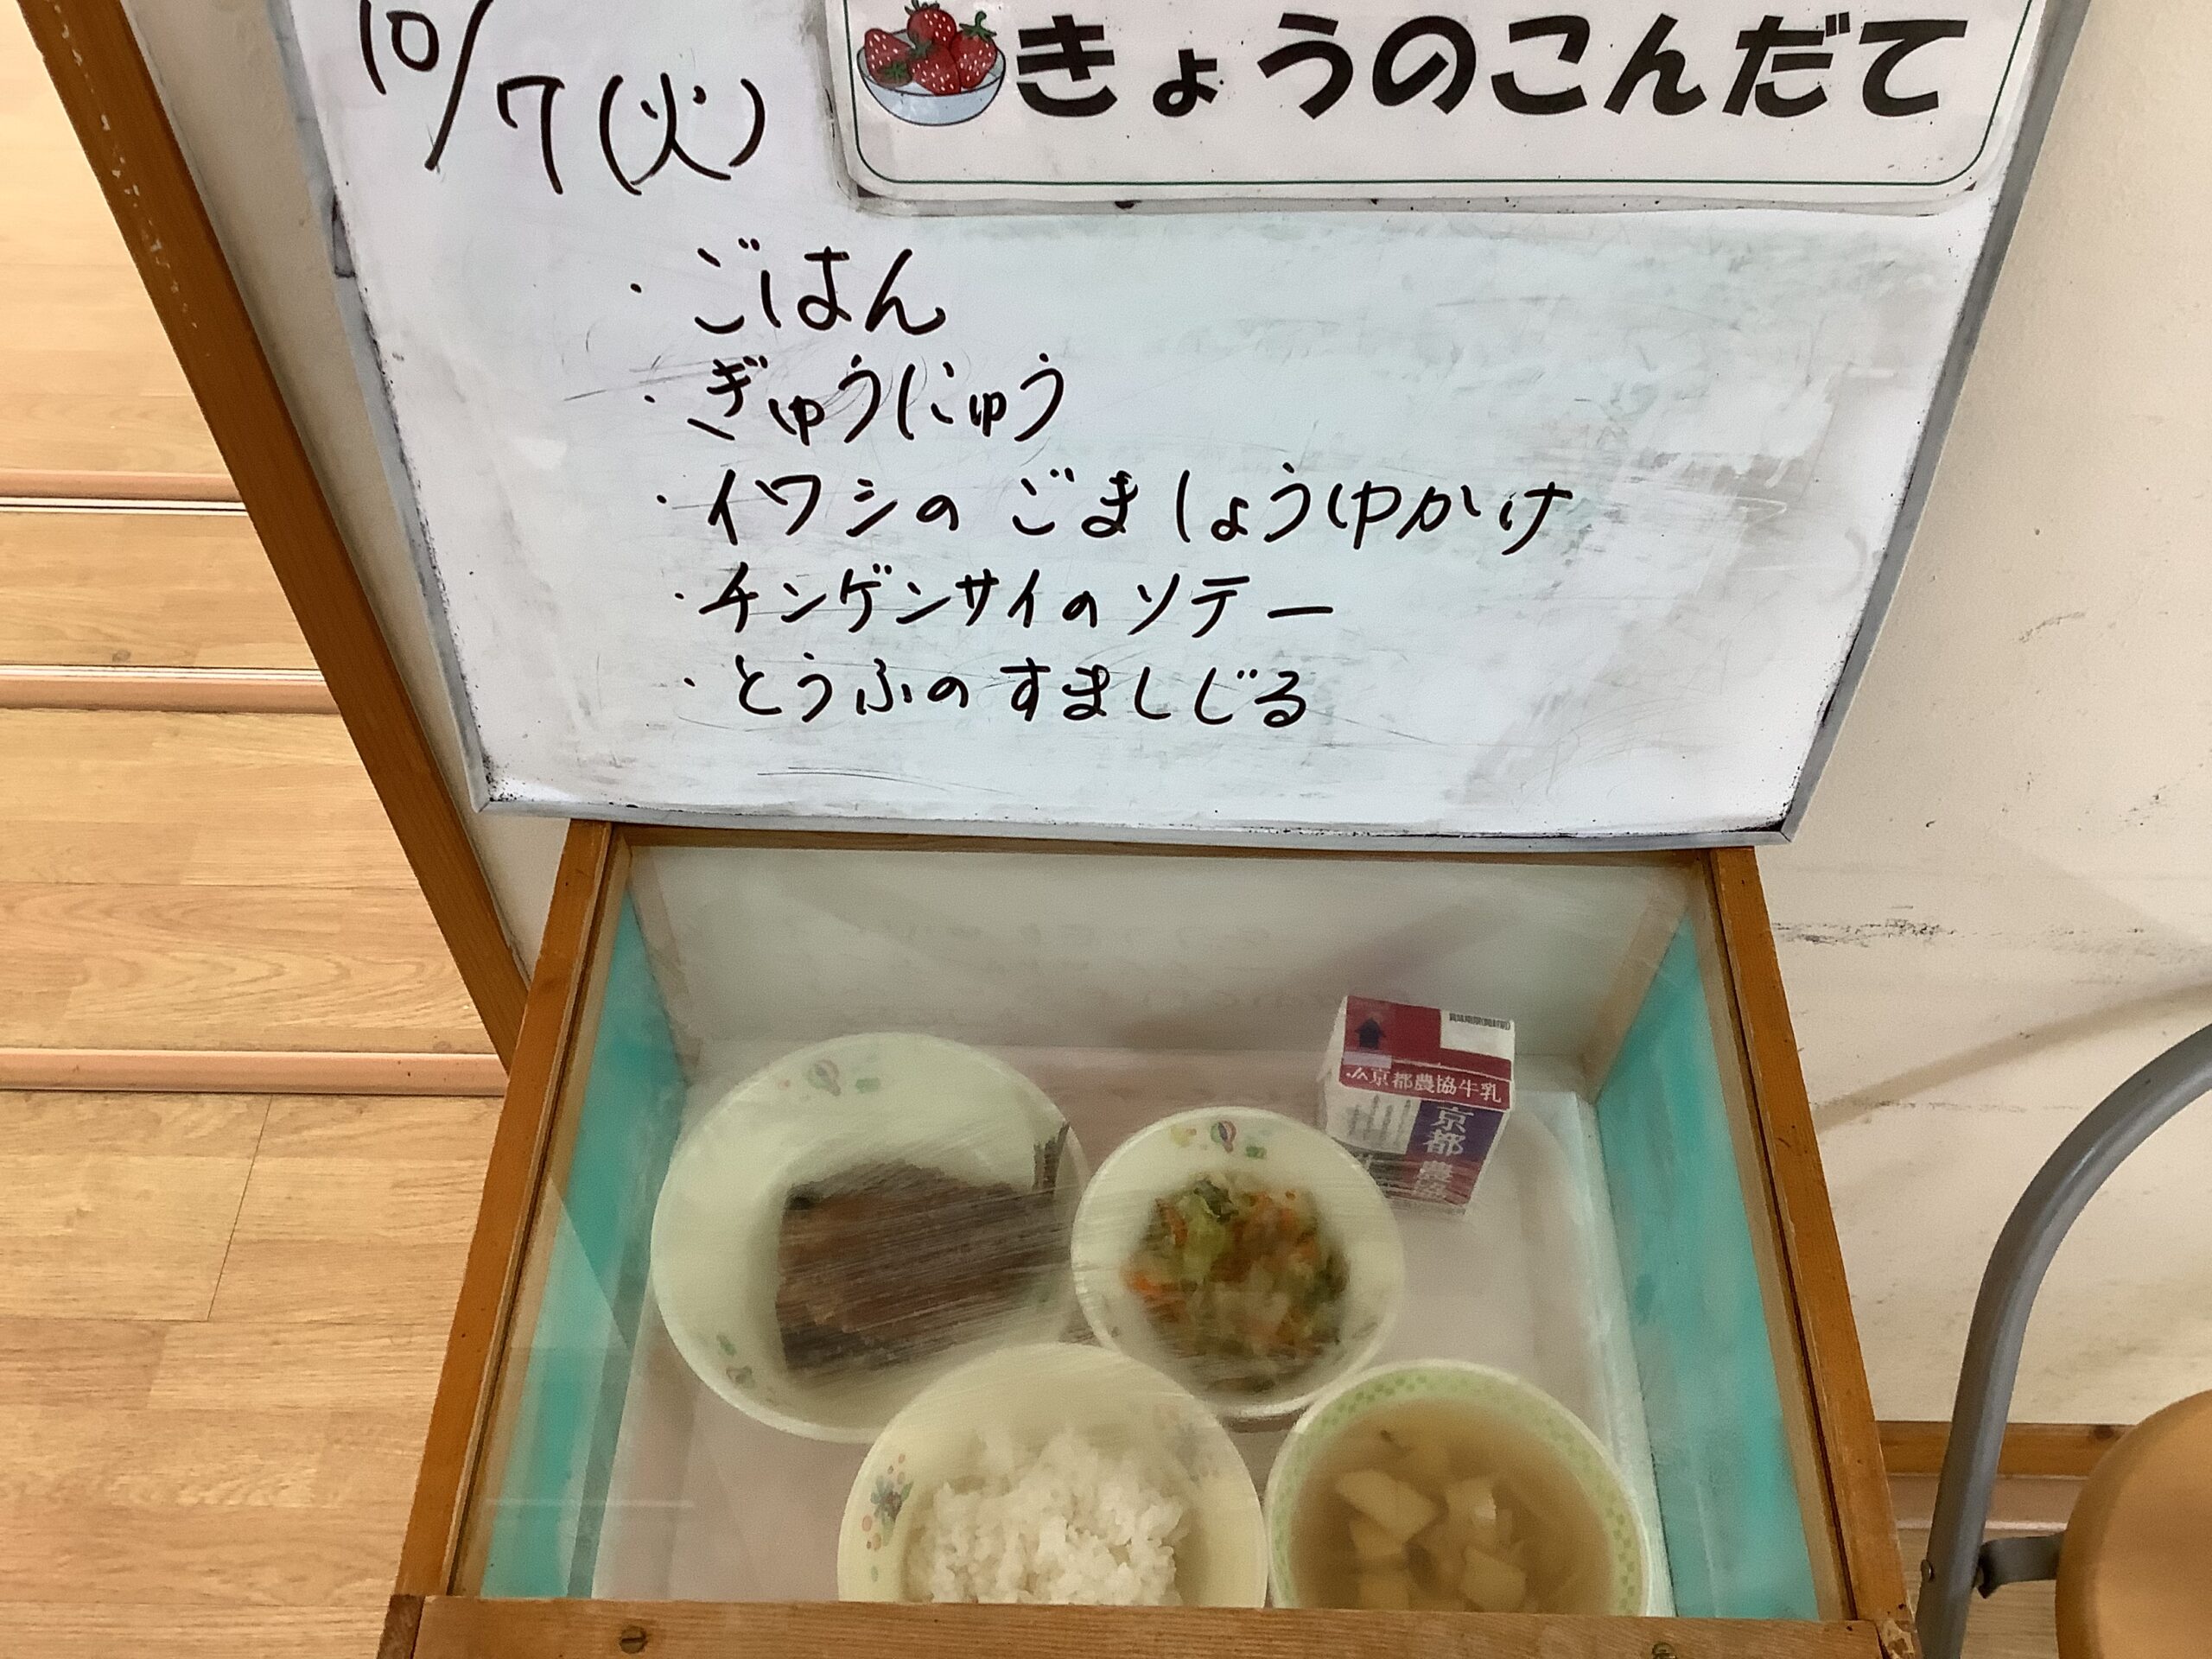 10/7(火)
きょうのこんだて
・ごはん
・ぎゅうにゅう
・イワシの ごましょうゆかけ
・チンゲンサイの ソテー
・とうふの すましじる
京都農協牛乳
京都
農協